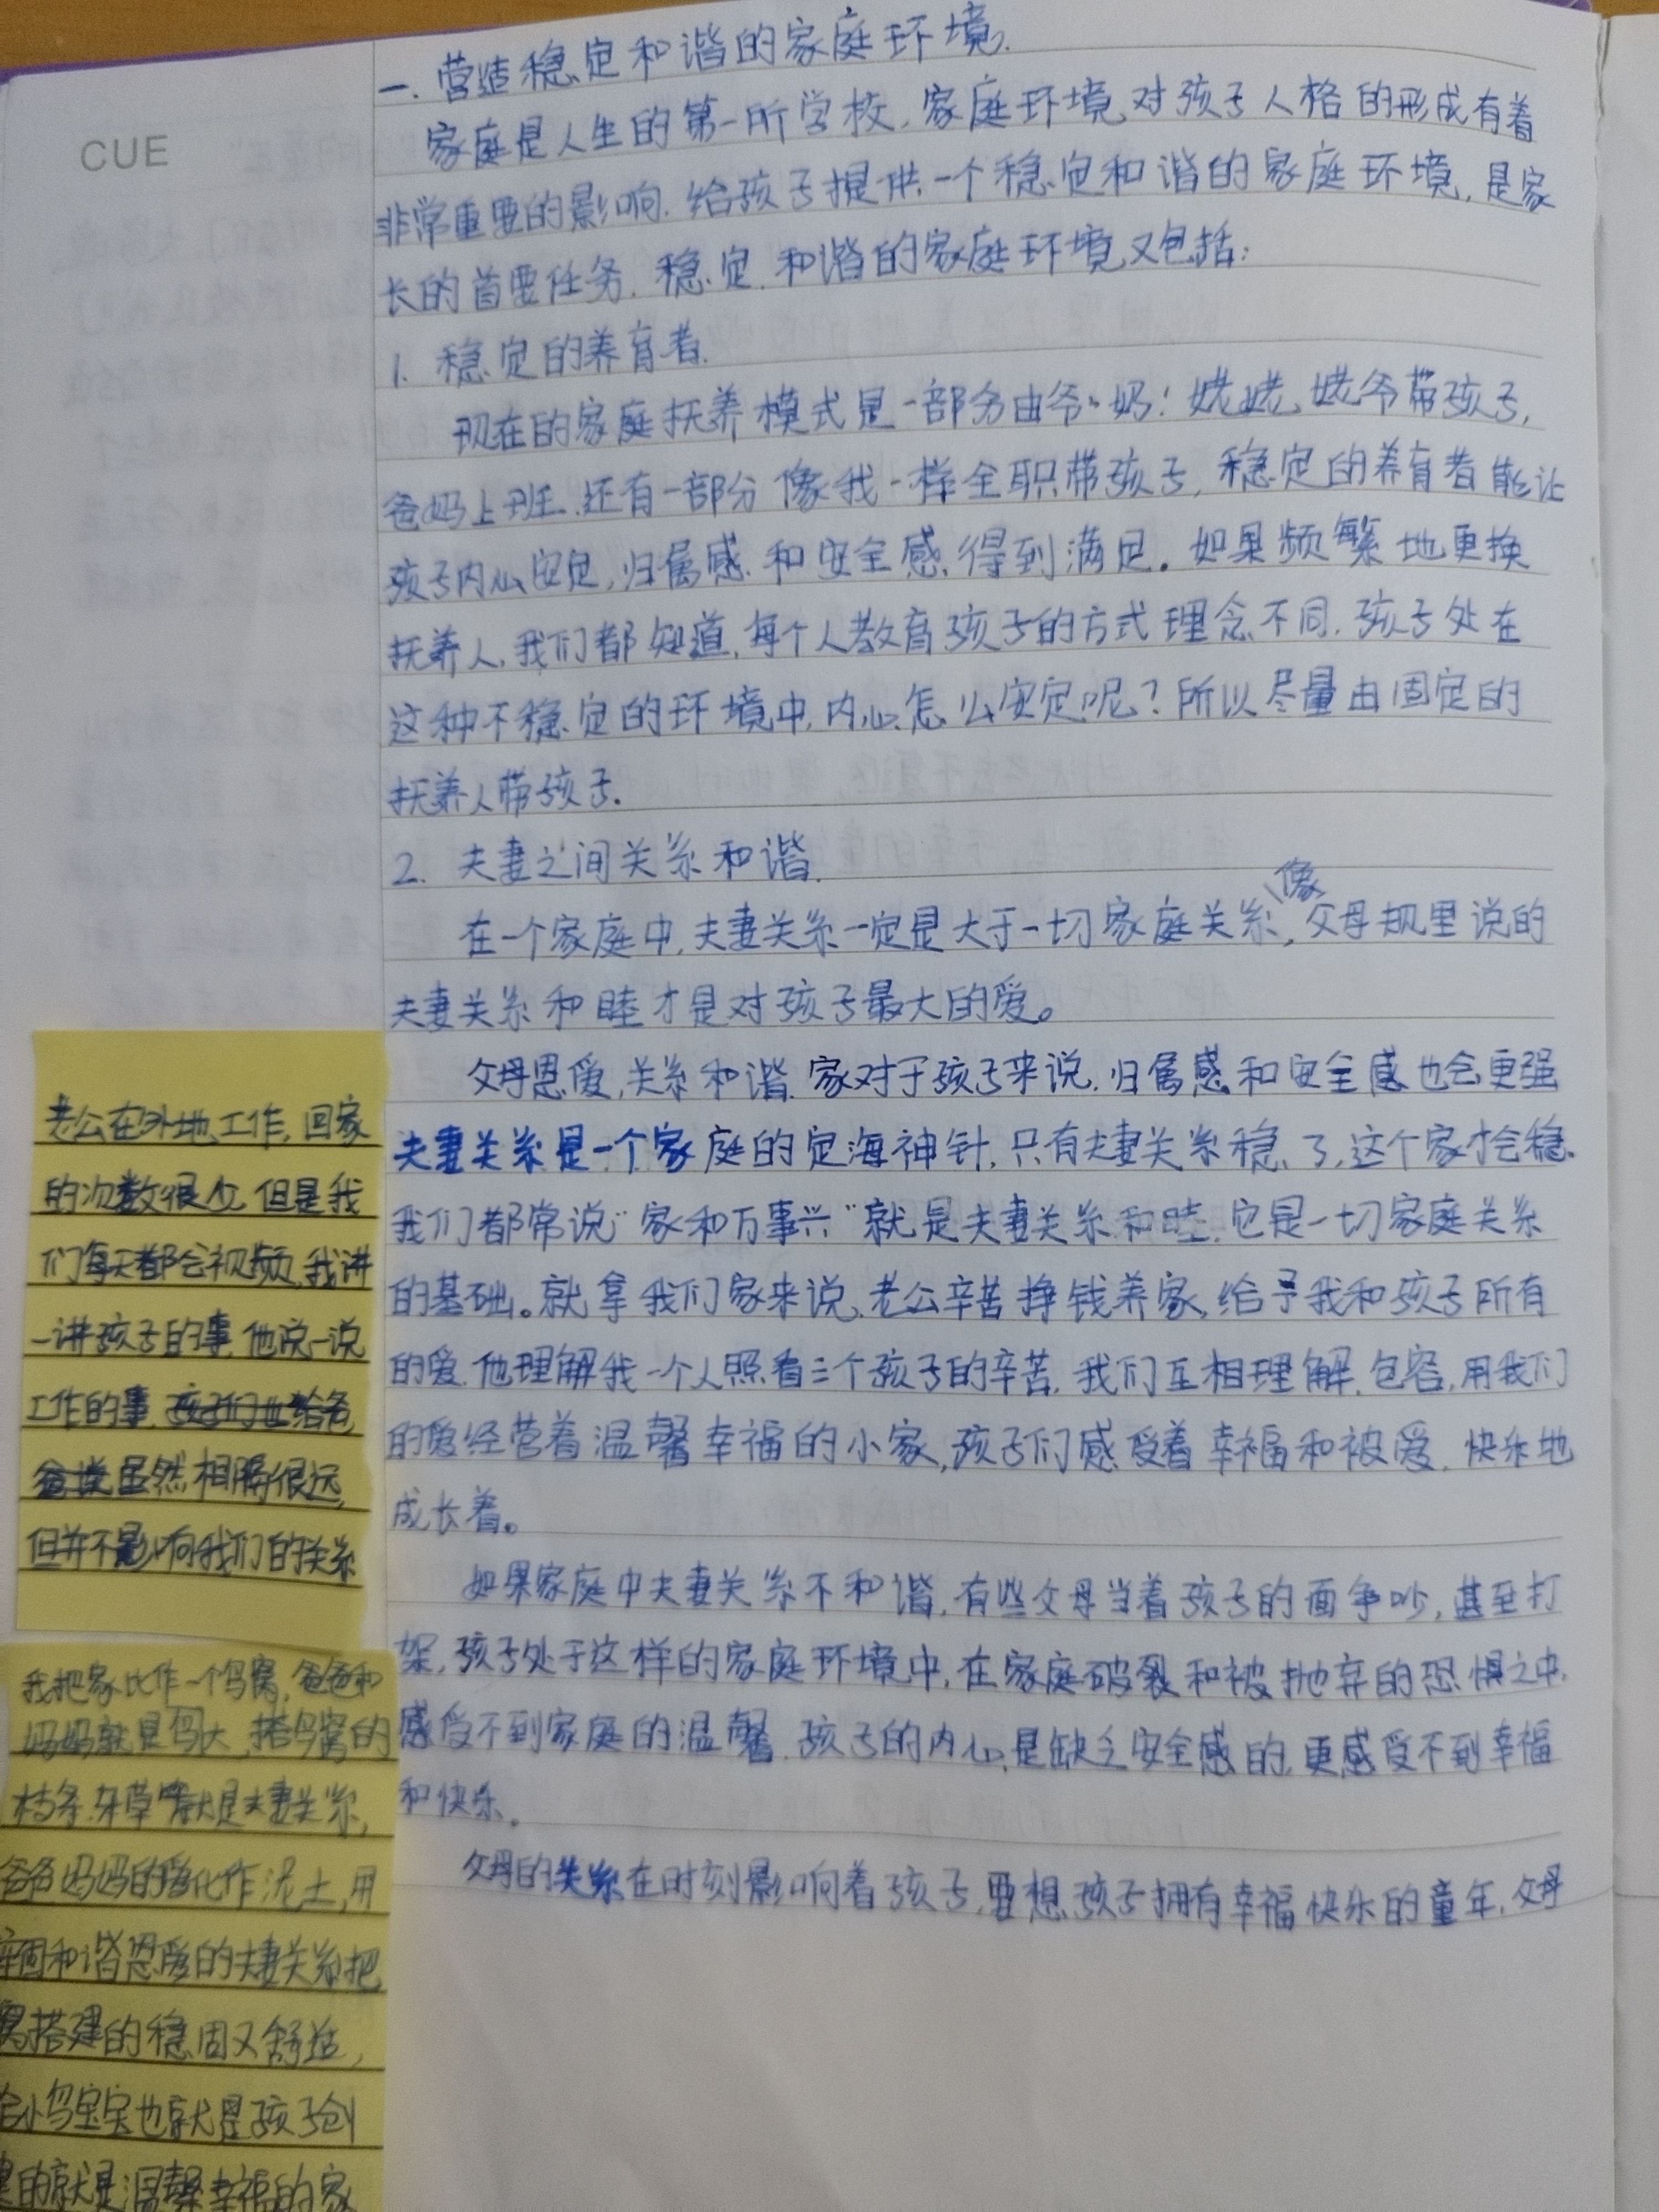 CUE
一.营造稳定和谐的家庭环境.
家庭是人生的第一所学校,家庭环境对孩子人格的形成有着
非常重要的影响.给孩子提供一个稳定和谐的家庭环境,是家
长的首要任务.稳定.和谐的家庭环境又包括:
1.稳定的养育者.
现在的家庭抚养模式是一部分由爷、奶!姥姥、姥爷带孩子,
爸妈上班.还有一部分像我一样全职带孩子,稳定的养育者能让
孩子内心安定,归属感和安全感得到满足。如果频繁地更换
抚养人,我们都知道,每个人教育孩子的方式理念不同.孩子处在
这种不稳定的环境中,内心怎么安定呢?所以尽量由固定的
抚养人带孩子.
2.夫妻之间关系和谐.
像
在一个家庭中,夫妻关系一定是大于一切家庭关系,父母规里说的
夫妻关系和睦才是对孩子最大的爱。
父母恩爱,关系和谐.家对于孩子来说.归属感和安全感也会更强
夫妻关系是一个家庭的定海神针,只有夫妻关系稳了,这个家才会稳.
我们都常说"家和万事兴"就是夫妻关系和睦.它是一切家庭关系
的基础。就拿我们家来说,老公辛苦挣钱养家,给予我和孩子所有
的爱.他理解我一个人照看三个孩子的辛苦.我们互相理解.包容,用我们
的爱经营着温馨幸福的小家,孩子们感受着幸福和被爱.快乐地
成长着。
如果家庭中夫妻关系不和谐,有些父母当着孩子的面争吵,甚至打
架,孩子处于这样的家庭环境中,在家庭破裂和被抛弃的恐惧之中,
感受不到家庭的温馨.孩子的内心是缺乏安全感的,更感受不到幸福
和快乐.
父母的关系在时刻影响着孩子,要想孩子拥有幸福快乐的童年,父母
老公在外地工作,回家
的次数很少,但是我
们每天都会视频,我讲
一讲孩子的事,他说一说
工作的事,孩子们也给爸
爸说虽然相隔很远,
但并不影响我们的关系
我把家比作一个鸟窝,爸爸和
妈妈就是鸟大,搭鸟窝的
枝条.杂草就是夫妻关系,
爸爸妈妈的爱化作泥土,用
牢固和谐恩爱的夫妻关系把
窝搭建的稳固又舒适,
给小鸟宝宝也就是孩子创
的就是温馨幸福的家